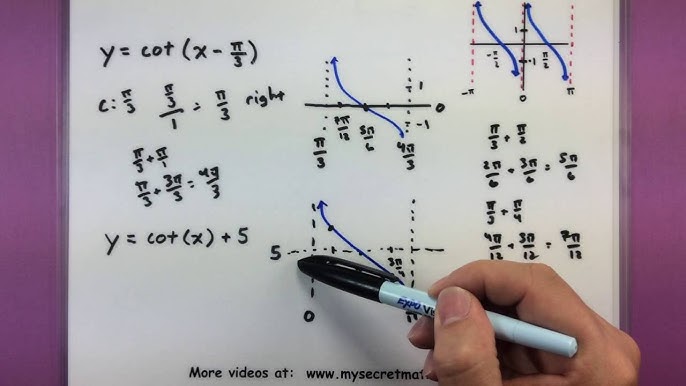 y = cot (x - π/3)
c: π/3 (π/3)/1 = π/3 right
π/3 + π/1
π/3 + 3π/3 = 4π/3
1
0
-1
π/3 7π/12 5π/6 4π/3
1
-π/2 -1 π/2
-π 0 π
π/3 + π/2
2π/6 + 3π/6 = 5π/6
π/3 + π/4
4π/12 + 3π/12 = 7π/12
y = cot(x) + 5
5
0
EXPO
More videos at: www.mysecretmat